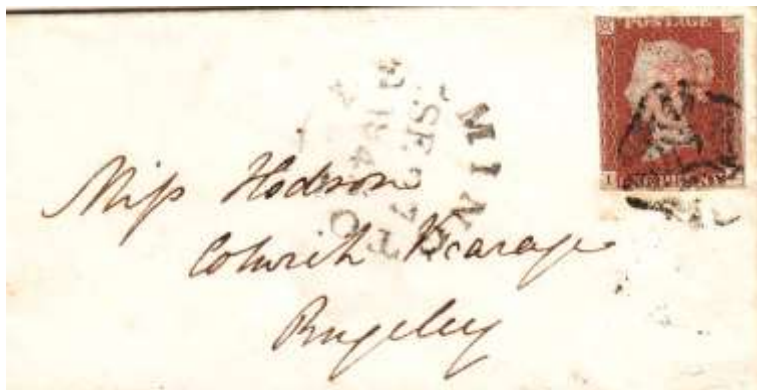 POSTAGE
ONE PENNY
Miss Hodson
Colwich Vicarage
Rugeley